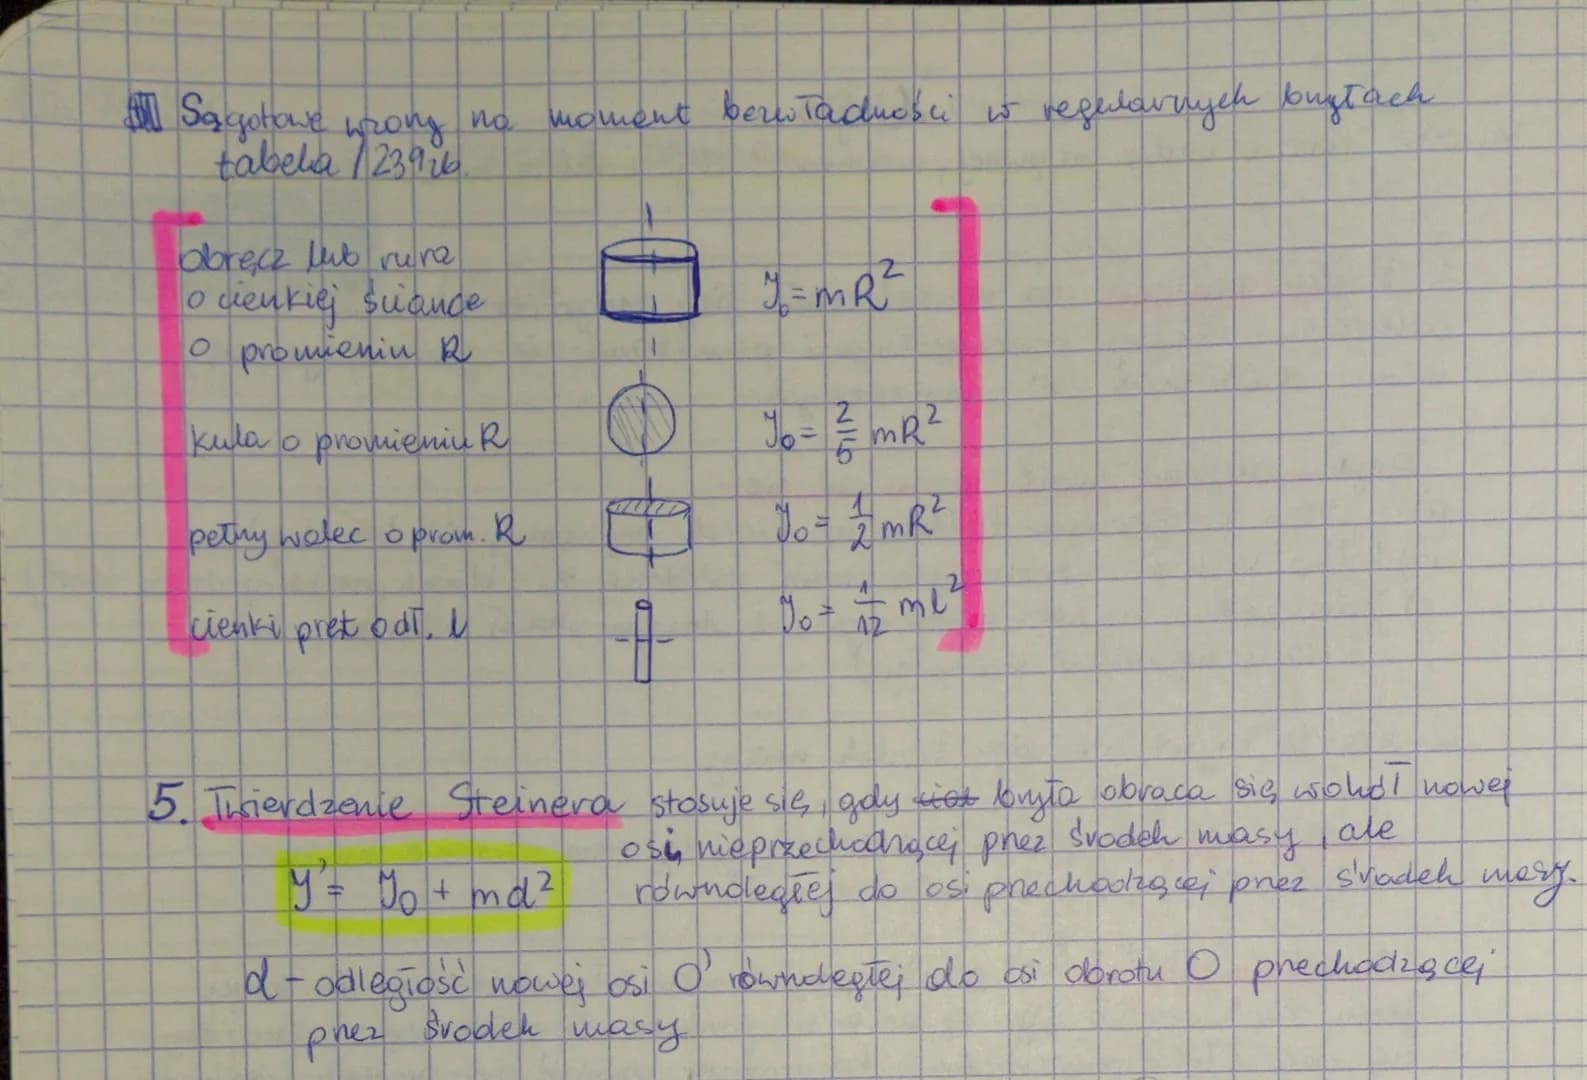 Są gotowe wzory na moment bezwładności w regularnych bryłach
tabela / 239 zb.
obręcz lub rura
o cienkiej ściance
o promieniu R
J₀ = mR²
kula o promieniu R
J₀ = 2/5 mR²
pełny walec o prom. R
J₀ = 1/2 mR²
cienki pręt o dł. l
J₀ = 1/12 ml²
5. Twierdzenie Steinera stosuje się, gdy bryła obraca się wokół nowej
osi nieprzechodzącej przez środek masy, ale
równoległej do osi przechodzącej przez środek masy.
J' = J₀ + md²
d - odległość nowej osi O' równoległej do osi obrotu O przechodzącej
przez środek masy